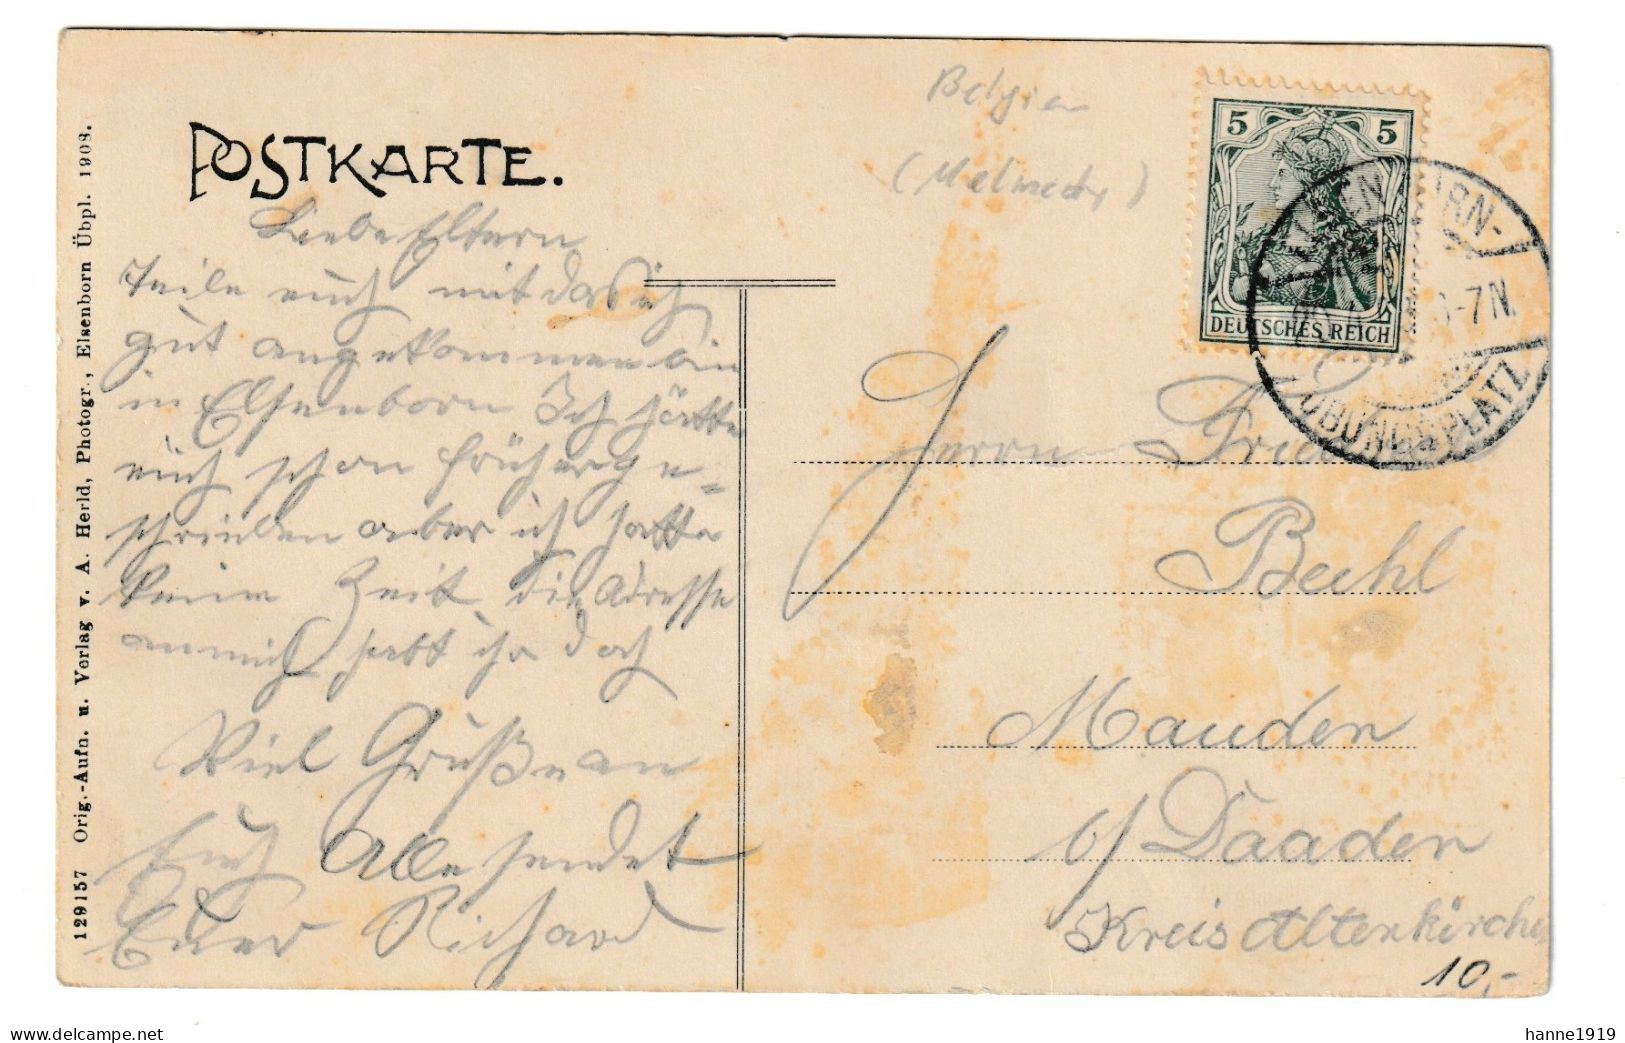 POSTKARTE.
Belgien
(Malmedy)
5 5
DEUTSCHES REICH
ELSENBORN-
6-7N.
ÜBUNGSPLATZ
Liebe Eltern
Teile euch mit das ich
gut angekommen bin
in Elsenborn Ich hätte
euch schon früher ge-
schrieben aber ich hatte
keine Zeit. die Adresse
an mich habt ihr doch
Viel Grüße an
Euch Alle sendet
Euer Richard
Herrn Fried.
Beihl
Mauden
b/ Daaden
Kreis Altenkirchen
10,-
129157 Orig.-Aufn. u. Verlag v. A. Herld, Photogr., Elsenborn Übpl. 1908.
delcampe.net
hanne1919